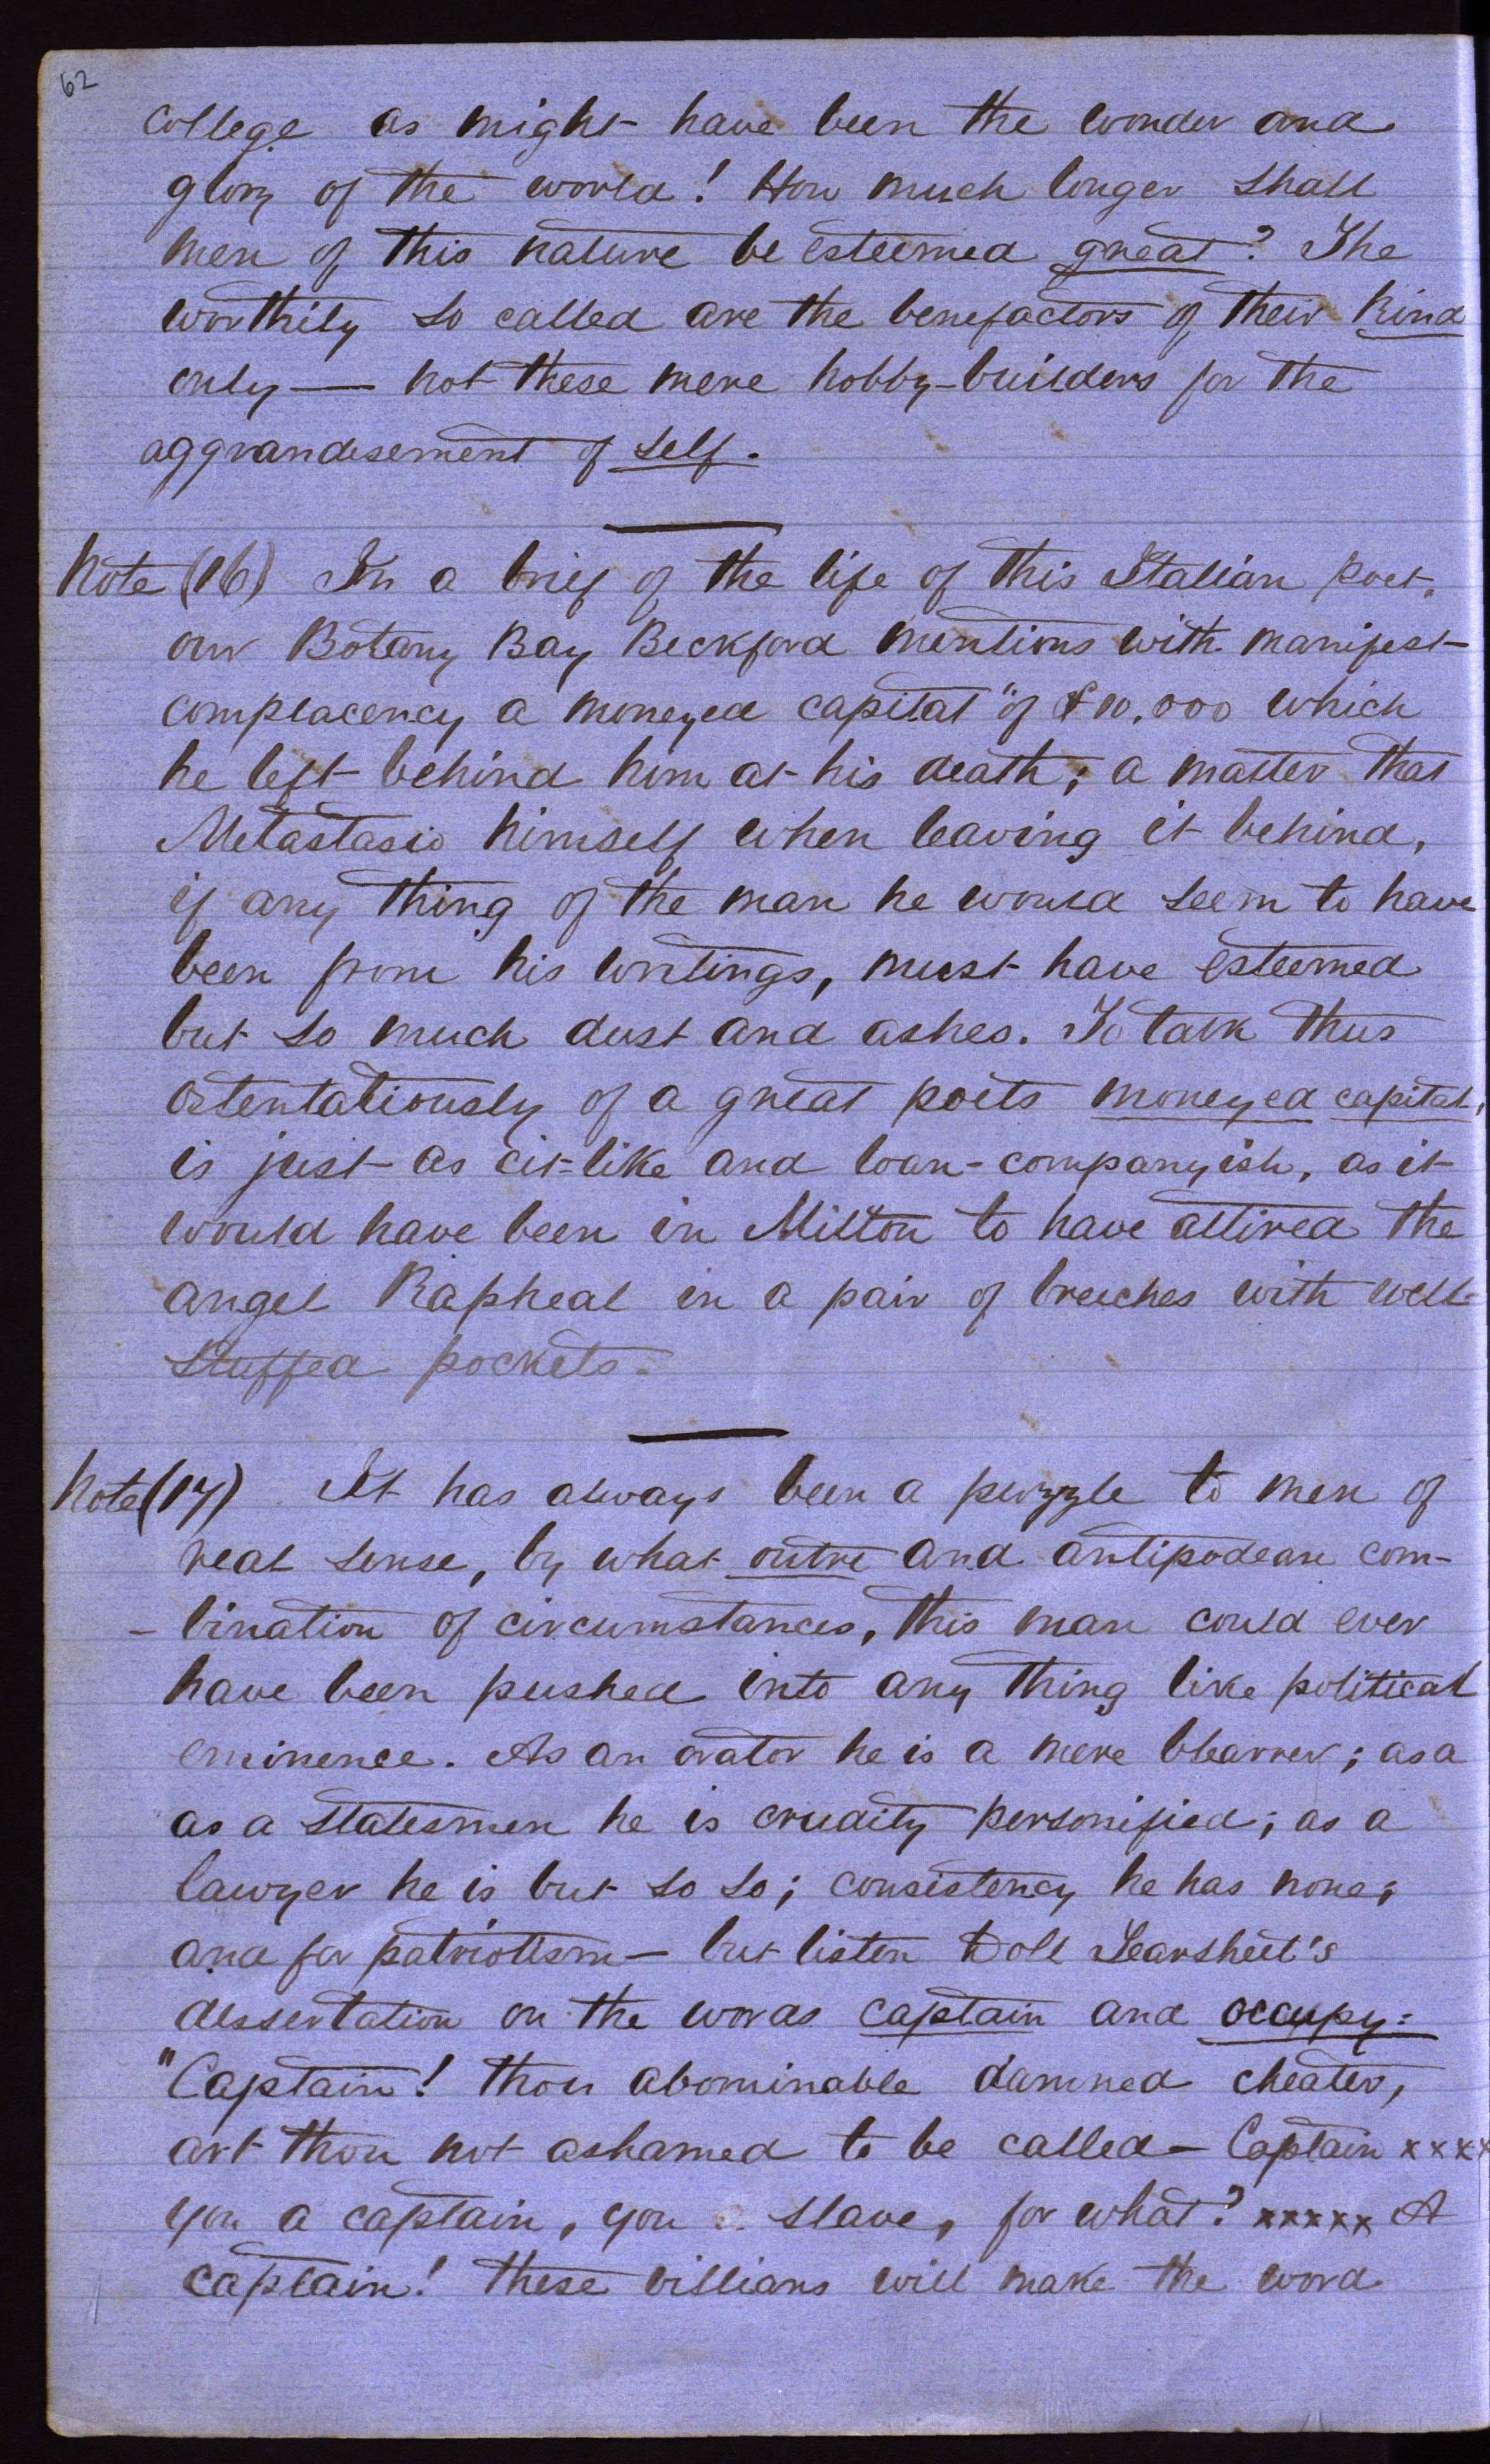 62
college as might have been the wonder and
glory of the world! How much longer shall
men of this nature be esteemed great? The
worthily so called are the benefactors of their kind
only — not these mere hobby-builders for the
aggrandisement of self.
Note (16) In a brief of the life of this Italian poet,
our Botany Bay Beckford mentions with manifest
complacency a moneyed capital" of £10,000 which
he left behind him at his death; a matter that
Metastasio himself when leaving it behind,
if any thing of the man he would seem to have
been from his writings, must have esteemed
but so much dust and ashes. To talk thus
ostentatiously of a great poets moneyed capital,
is just as cit-like and loan-companyish, as it
would have been in Milton to have attired the
angel Rapheal in a pair of breeches with well-
stuffed pockets.
Note (17) It has always been a puzzle to men of
real sense, by what outre and antipodean com-
-bination of circumstances, this man could ever
have been pushed into any thing like political
eminence. As an orator he is a mere blearrer; as a
as a statesmen he is crudity personified; as a
lawyer he is but so so; consistency he has none;
and for patriotism — but listen Doll Tearsheet's
dessertation on the words captain and occupy:
"Captain! thou abominable damned cheater,
art thou not ashamed to be called — Captain xxxx
you a captain, you slave, for what? xxxxx A
captain! these villians will make the word